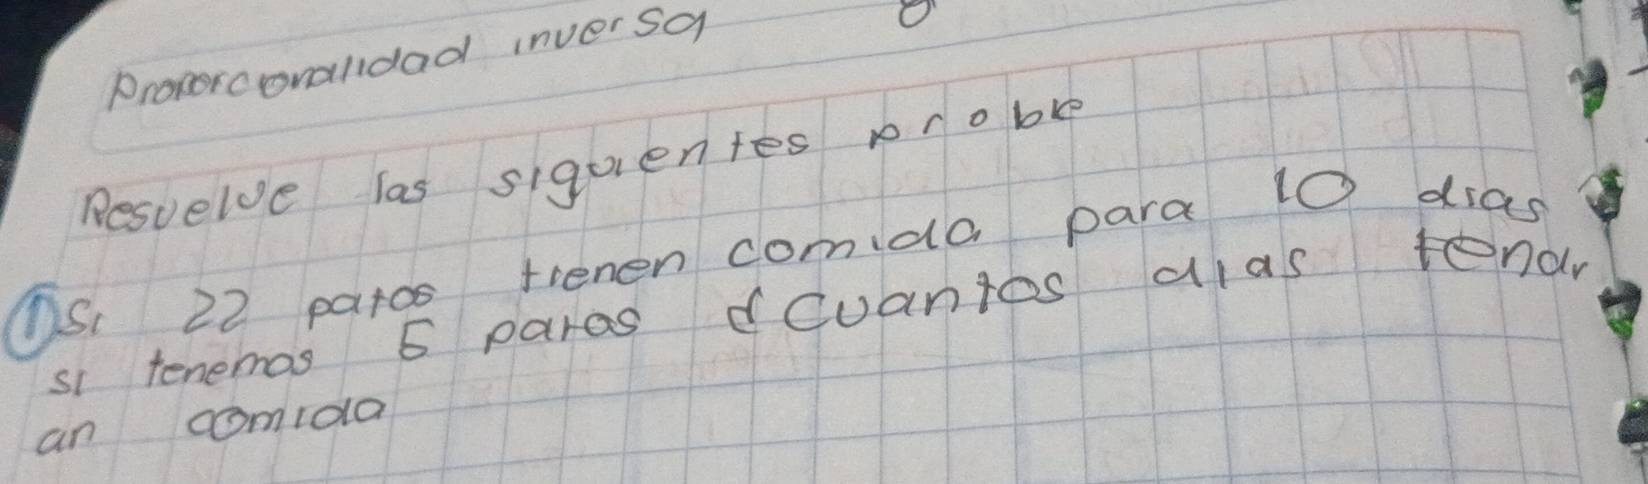 Proporcionalidad inversa
Resuelve las siguientes proble
① Si 22 patos tienen comida para 10 dias
si tenemos 5 patos ¿Cuantos dias tendr
an comida